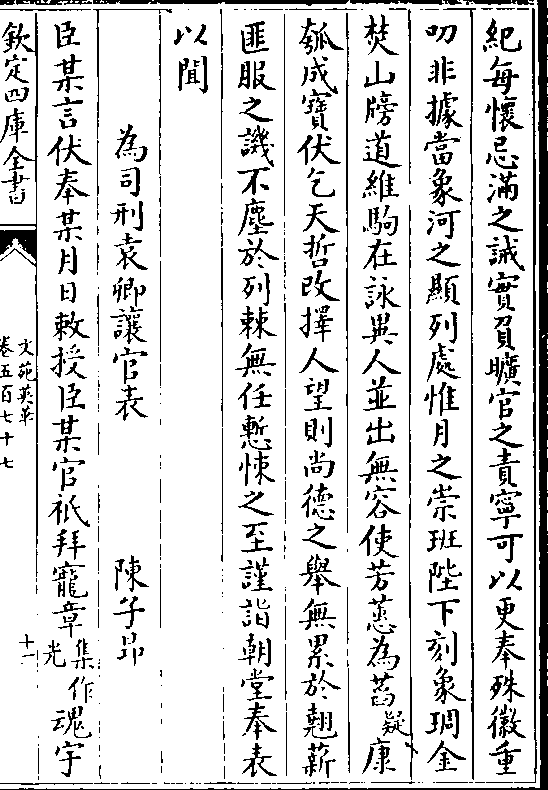 紀每懷忌滿之誡實負曠官之責寧可以更奉殊徽重
叨非據當象河之顯列處惟月之崇班陛下刻象琱金
焚山牓道維駒在詠異人並出無容使芳蕙為菑疑康
瓠成寶伏乞天哲改擇人望則尚德之舉無累於翹薪
匪服之譏不塵於列棘無任慙悚之至謹詣朝堂奉表
以聞
為司刑袁卿讓官表 陳子昻
臣某言伏奉某月日敕授臣某官祇拜寵章集作光魂宇
欽定四庫全書
文苑英華
卷五百七十七
十一